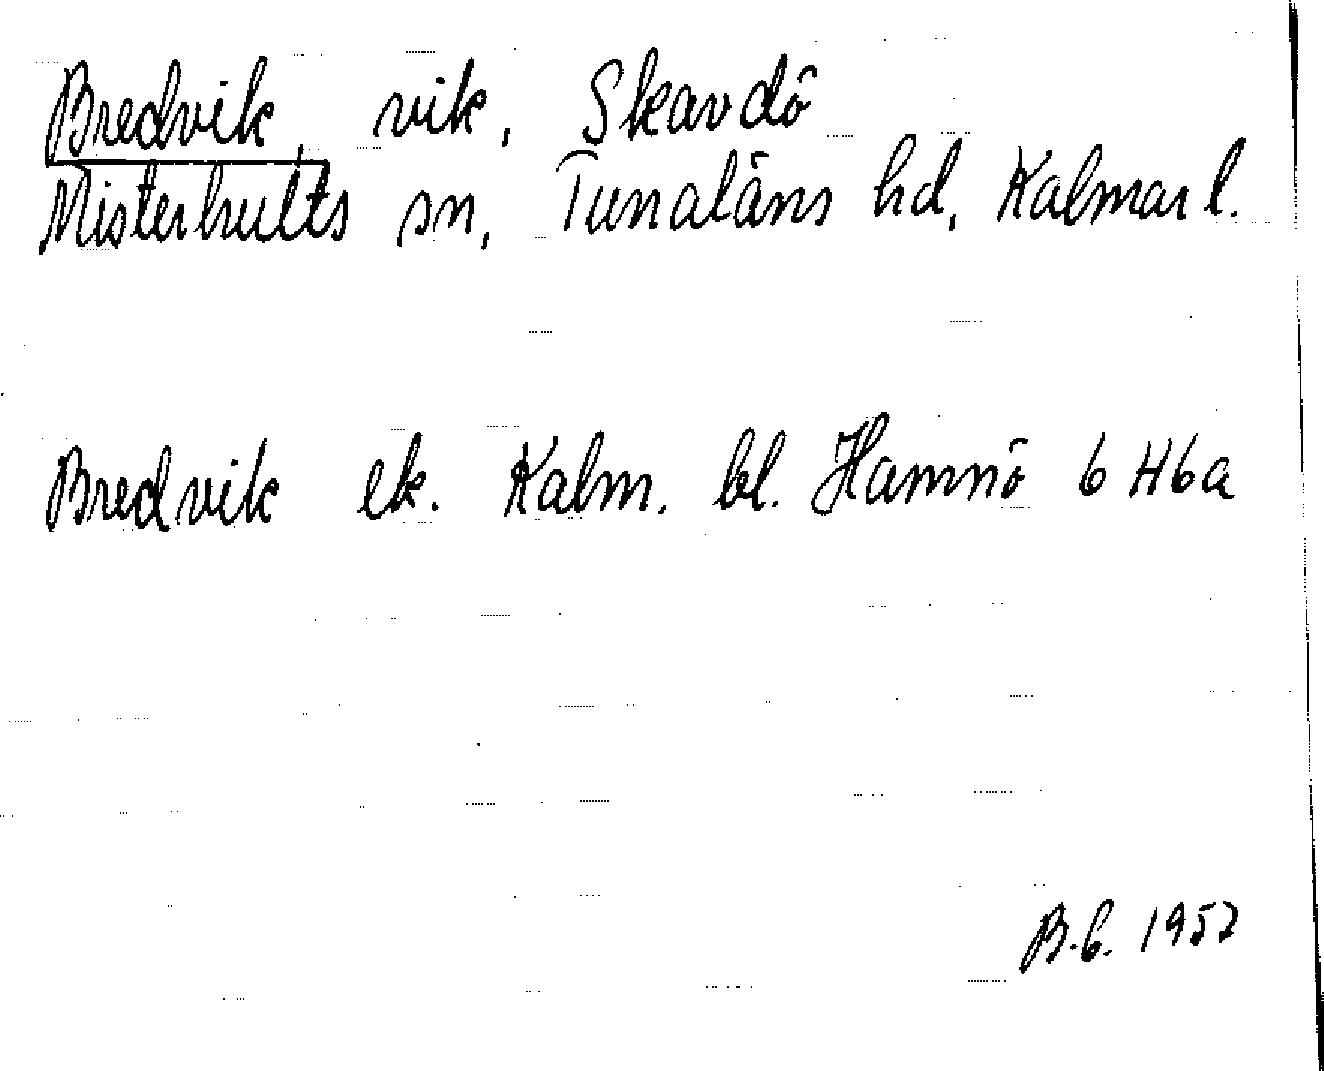 Bredvik, vik, Skavdö
Misterhults sn, Tunaläns hd, Kalmar l.
Bredvik ek. Kalm. bl. Hamnö 6 H6a
B.G. 1952